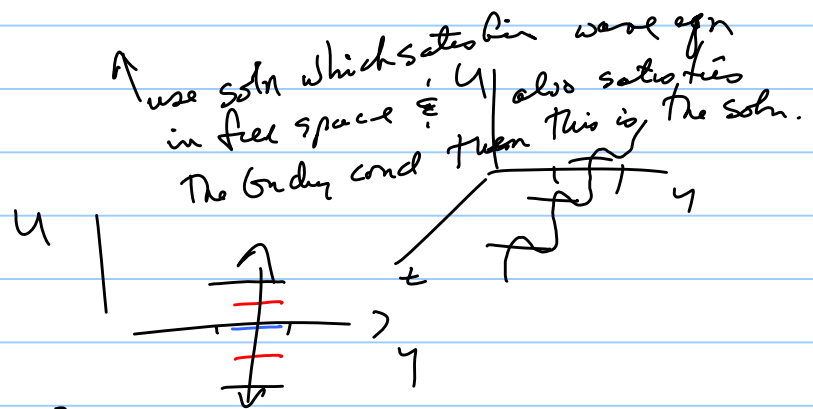 use soln which satisfies wave eqn
in free space & also satisfies
the bndry cond then this is the soln.
U
y
t
U
y